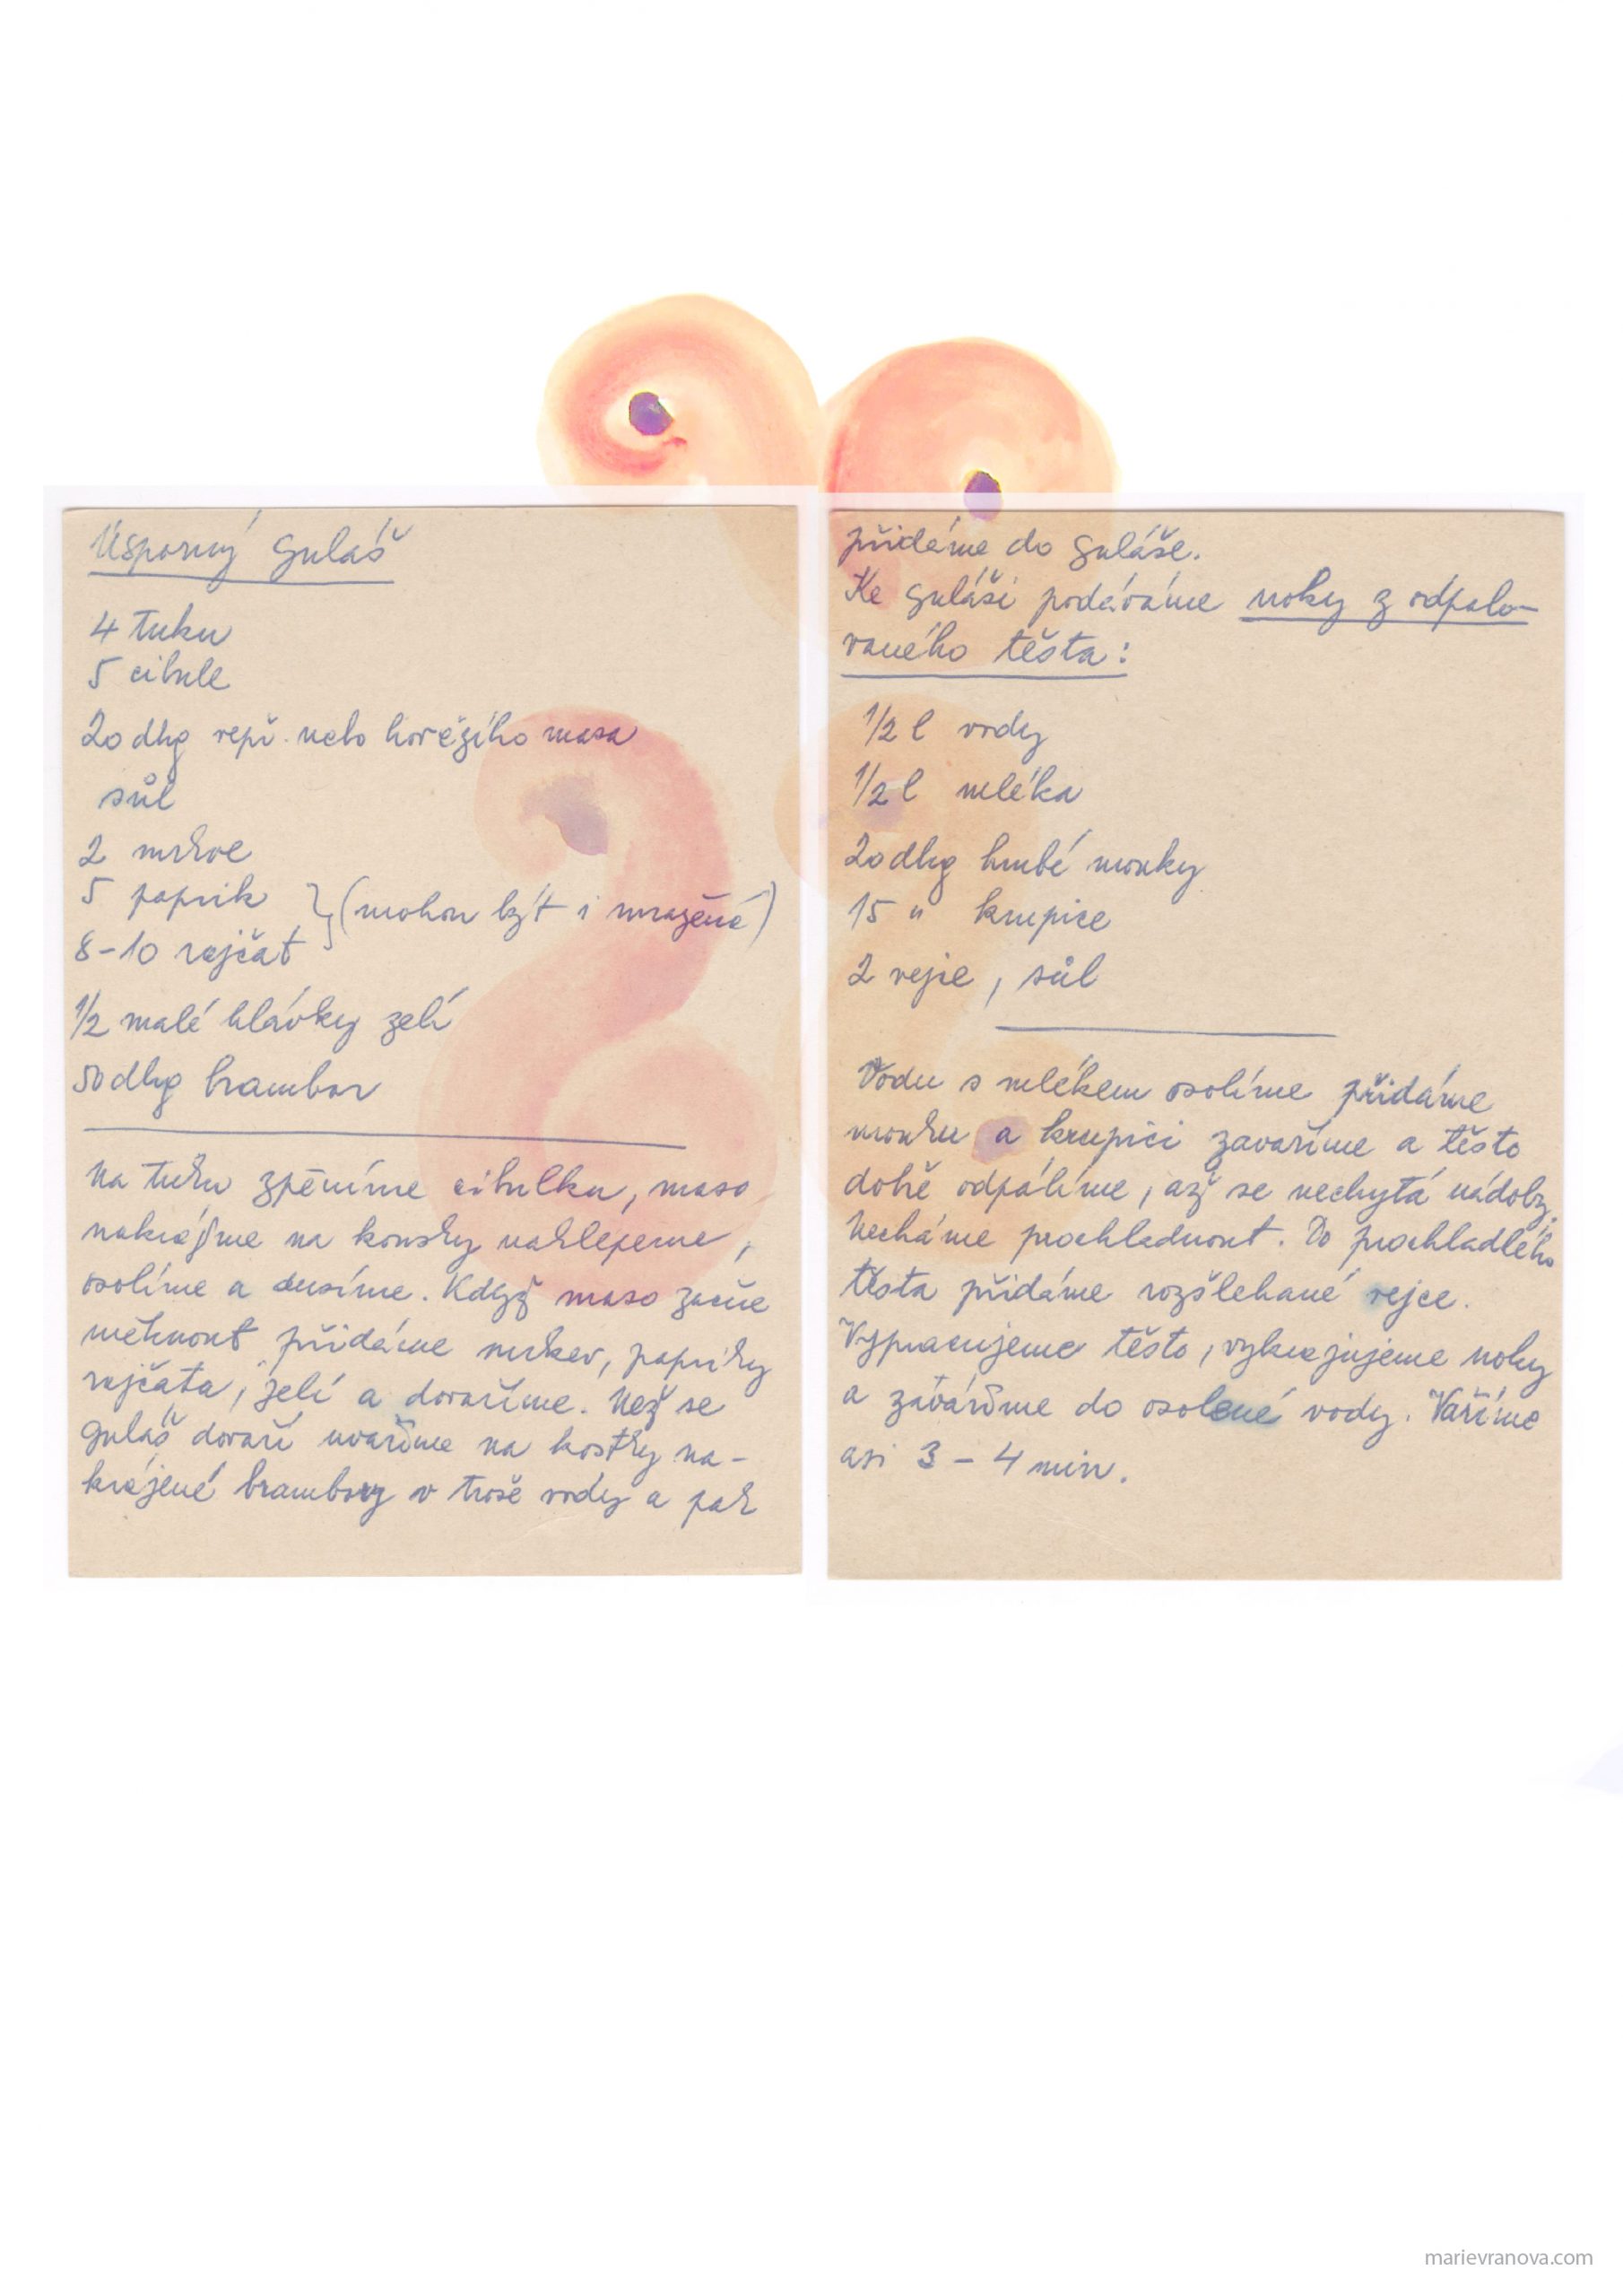 Úsporný guláš
4 tuku
5 cibule
20 dkg vepř. nebo hovězího masa
sůl
2 mrkve
5 paprik
8-10 rajčat
} (mohou být i mražené)
1/2 malé hlávky zelí
50 dkg brambor
Na tuku zpěníme cibulku, maso
nakrájíme na kousky naklepeme,
osolíme a dusíme. Když maso začne
měknout přidáme mrkev, papriky
rajčata, zelí a dovaříme. Než se
guláš dovaří uvaříme na kostky na-
krájené brambory v troše vody a pak
přidáme do guláše.
Ke guláši podáváme noky z odpalo-
vaného těsta:
1/2 l vody
1/2 l mléka
20 dkg hrubé mouky
15 " krupice
2 vejce, sůl
Vodu s mlékem osolíme přidáme
mouku a krupici zavaříme a těsto
dobře odpálíme, až se nechytá nádoby.
Necháme prochladnout. Do prochladlého
těsta přidáme rozšlehané vejce.
Vypracujeme těsto, vykrajujeme noky
a zaváříme do osolené vody. Vaříme
asi 3 - 4 min.
marievranova.com